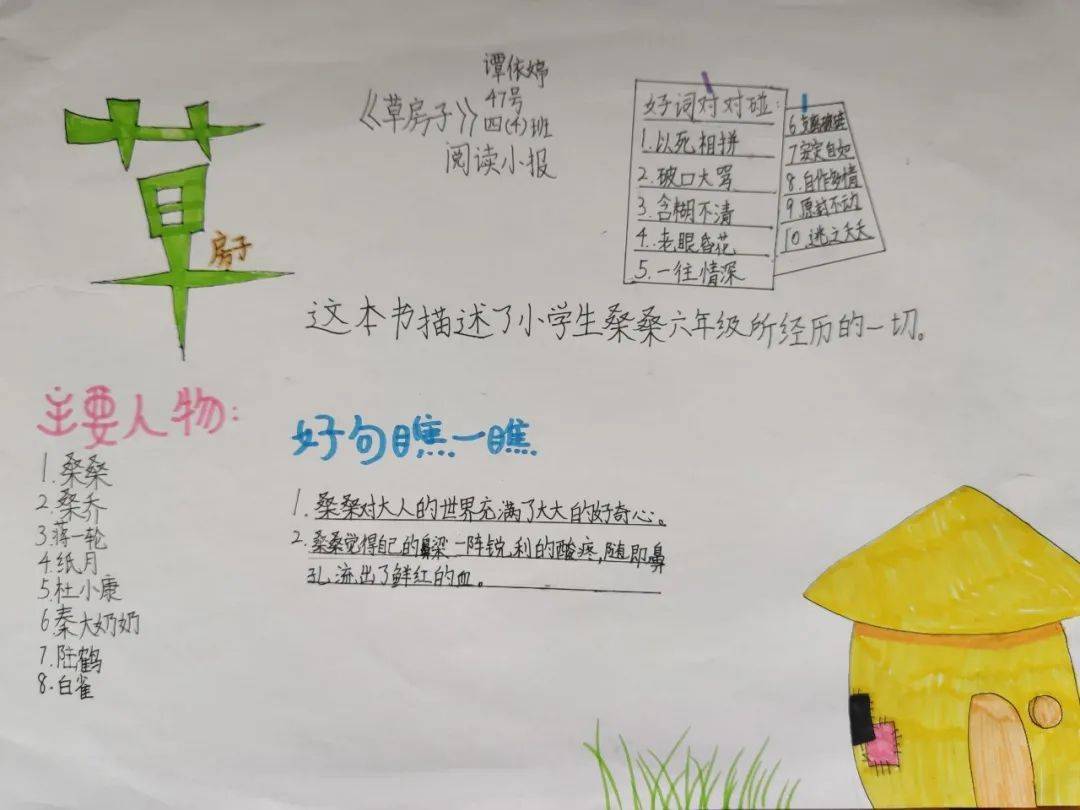 草
房子
谭依婷
47号
《草房子》四(4)班
阅读小报
好词对对碰:
1.以死相拼
2.破口大骂
3.含糊不清
4.老眼昏花
5.一往情深
7安定自如
8.自作多情
9原封不动
10.逃之夭夭
这本书描述了小学生桑桑六年级所经历的一切。
主要人物:
1.桑桑
2.桑乔
3.蒋一轮
4.纸月
5.杜小康
6.秦大奶奶
7.陆鹤
8.白雀
好句瞧一瞧
1.桑桑对大人的世界充满了大大的好奇心。
2.桑桑觉得自己的鼻梁一阵锐利的酸疼,随即鼻
孔流出了鲜红的血。